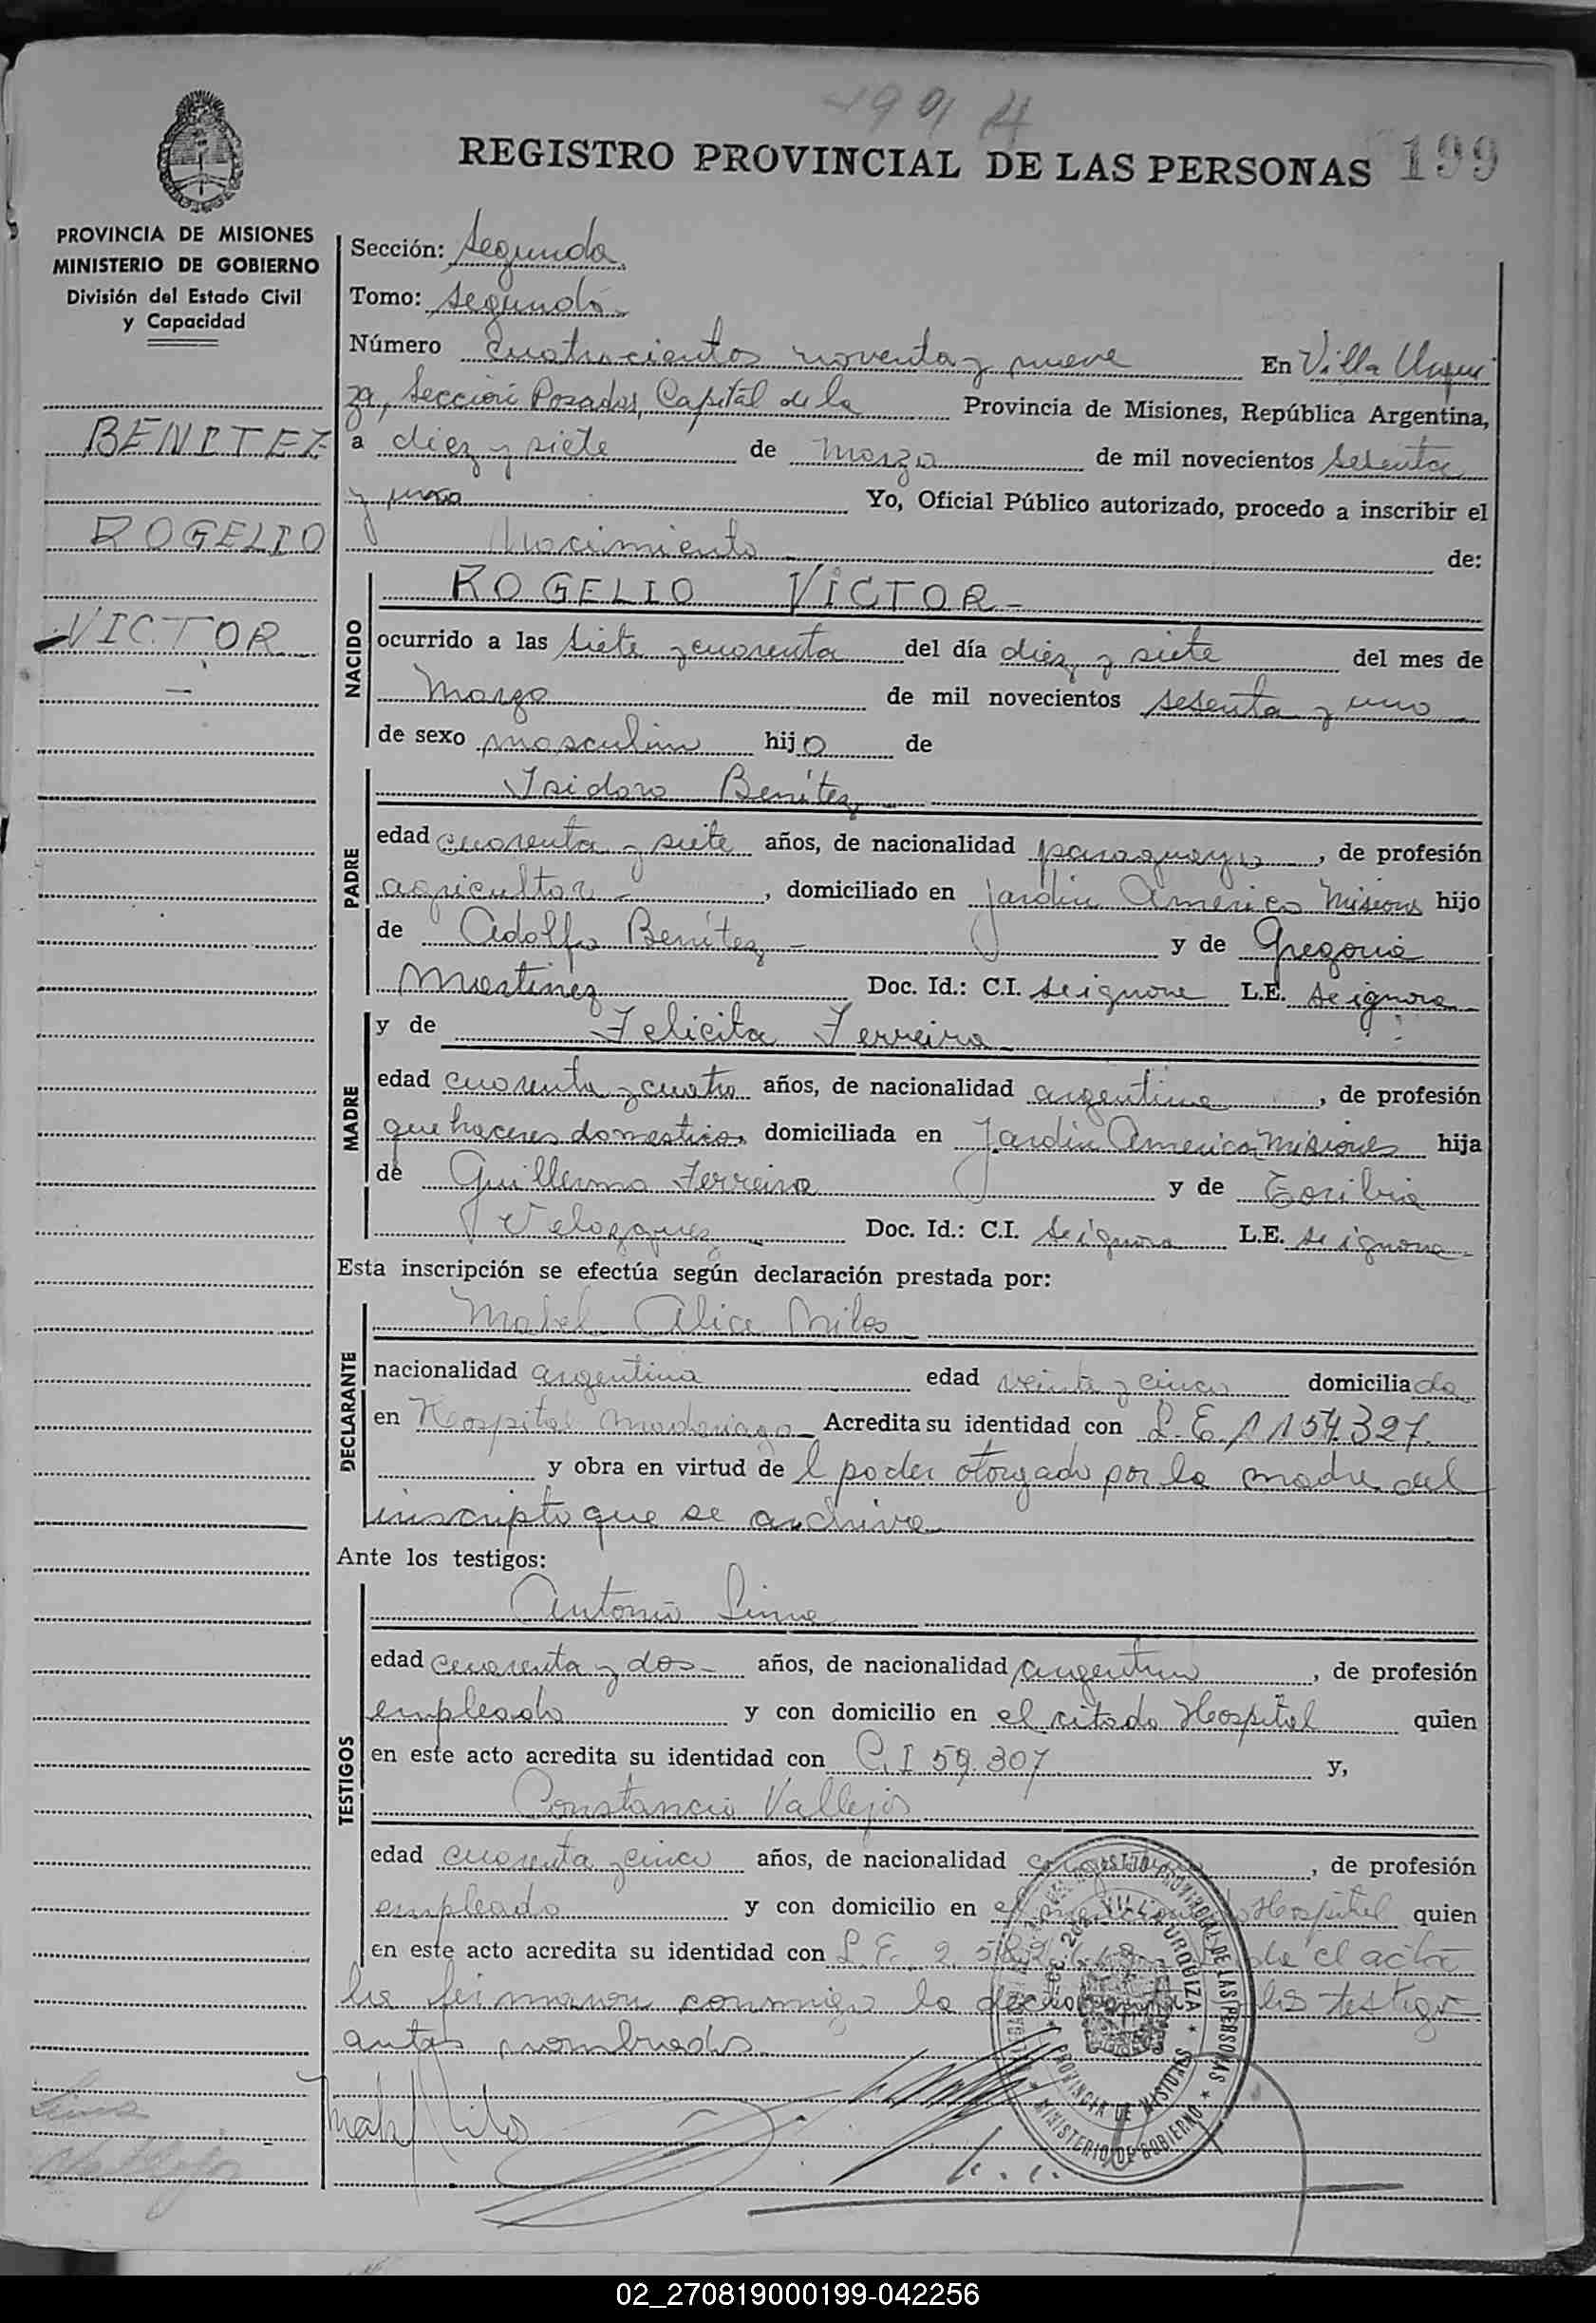 199 4
REGISTRO PROVINCIAL DE LAS PERSONAS 199
PROVINCIA DE MISIONES
MINISTERIO DE GOBIERNO
División del Estado Civil
y Capacidad
BENITEZ
ROGELIO
VICTOR
Sección: Segunda
Tomo: segundo
Número cuatrocientos noventa y nueve En Villa Urqui
za, Sección Posadas, Capital de la Provincia de Misiones, República Argentina,
a diez y siete de Marzo de mil novecientos sesenta
y uno Yo, Oficial Público autorizado, procedo a inscribir el
Nacimiento de:
NACIDO
ROGELIO VICTOR
ocurrido a las siete y cuarenta del día diez y siete del mes de
Marzo de mil novecientos sesenta y uno
de sexo masculino hijo de
PADRE
Isidoro Benítez
edad cuarenta y siete años, de nacionalidad paraguayo, de profesión
agricultor, domiciliado en Jardin America Misiones hijo
de Adolfo Benítez y de Gregoria
Martinez Doc. Id.: C.I. se ignora L.E. se ignora
MADRE
y de Felicita Ferreira
edad cuarenta y cuatro años, de nacionalidad argentina, de profesión
quehaceres domesticos domiciliada en Jardin America Misiones hija
de Guillermo Ferreira y de Toribia
Velazquez Doc. Id.: C.I. se ignora L.E. se ignora
Esta inscripción se efectúa según declaración prestada por:
DECLARANTE
Mabel Alice Milos
nacionalidad argentina edad veinte y cinco domiciliada
en Hospital Madariaga Acredita su identidad con L.E. 1154.327
y obra en virtud de l poder otorgado por la madre del
inscripto que se archiva
Ante los testigos:
TESTIGOS
Antonio Lima
edad cuarenta y dos años, de nacionalidad argentino, de profesión
empleado y con domicilio en el citado Hospital quien
en este acto acredita su identidad con C.I 59.307 y,
Constancio Vallejos
edad cuarenta y cinco años, de nacionalidad de profesión
empleado y con domicilio en el Hospital quien
en este acto acredita su identidad con L.E. 2. el acta
la firmaron conmigo la declarante los testigos
antes nombrados
REGISTRO PROVINCIAL DE LAS PERSONAS
VILLA URQUIZA
PROVINCIA DE MISIONES
MINISTERIO DE GOBIERNO
Lima
Vallejos
Mabel Milos
02_270819000199-042256